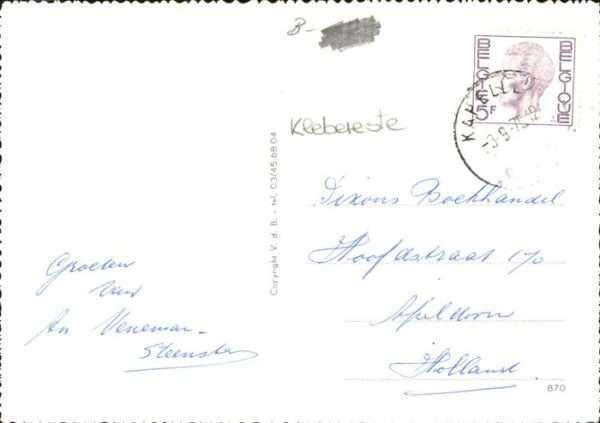 B-
BELGIE 5F BELGIQUE
-3-9-75
Klebereste
Copyright V. d. B. - tel. 03/45.68.04
Groeten
van
An Veneman-
Dixons Boekhandel
Hoofdstraat 170
Apeldoorn
Holland.
870